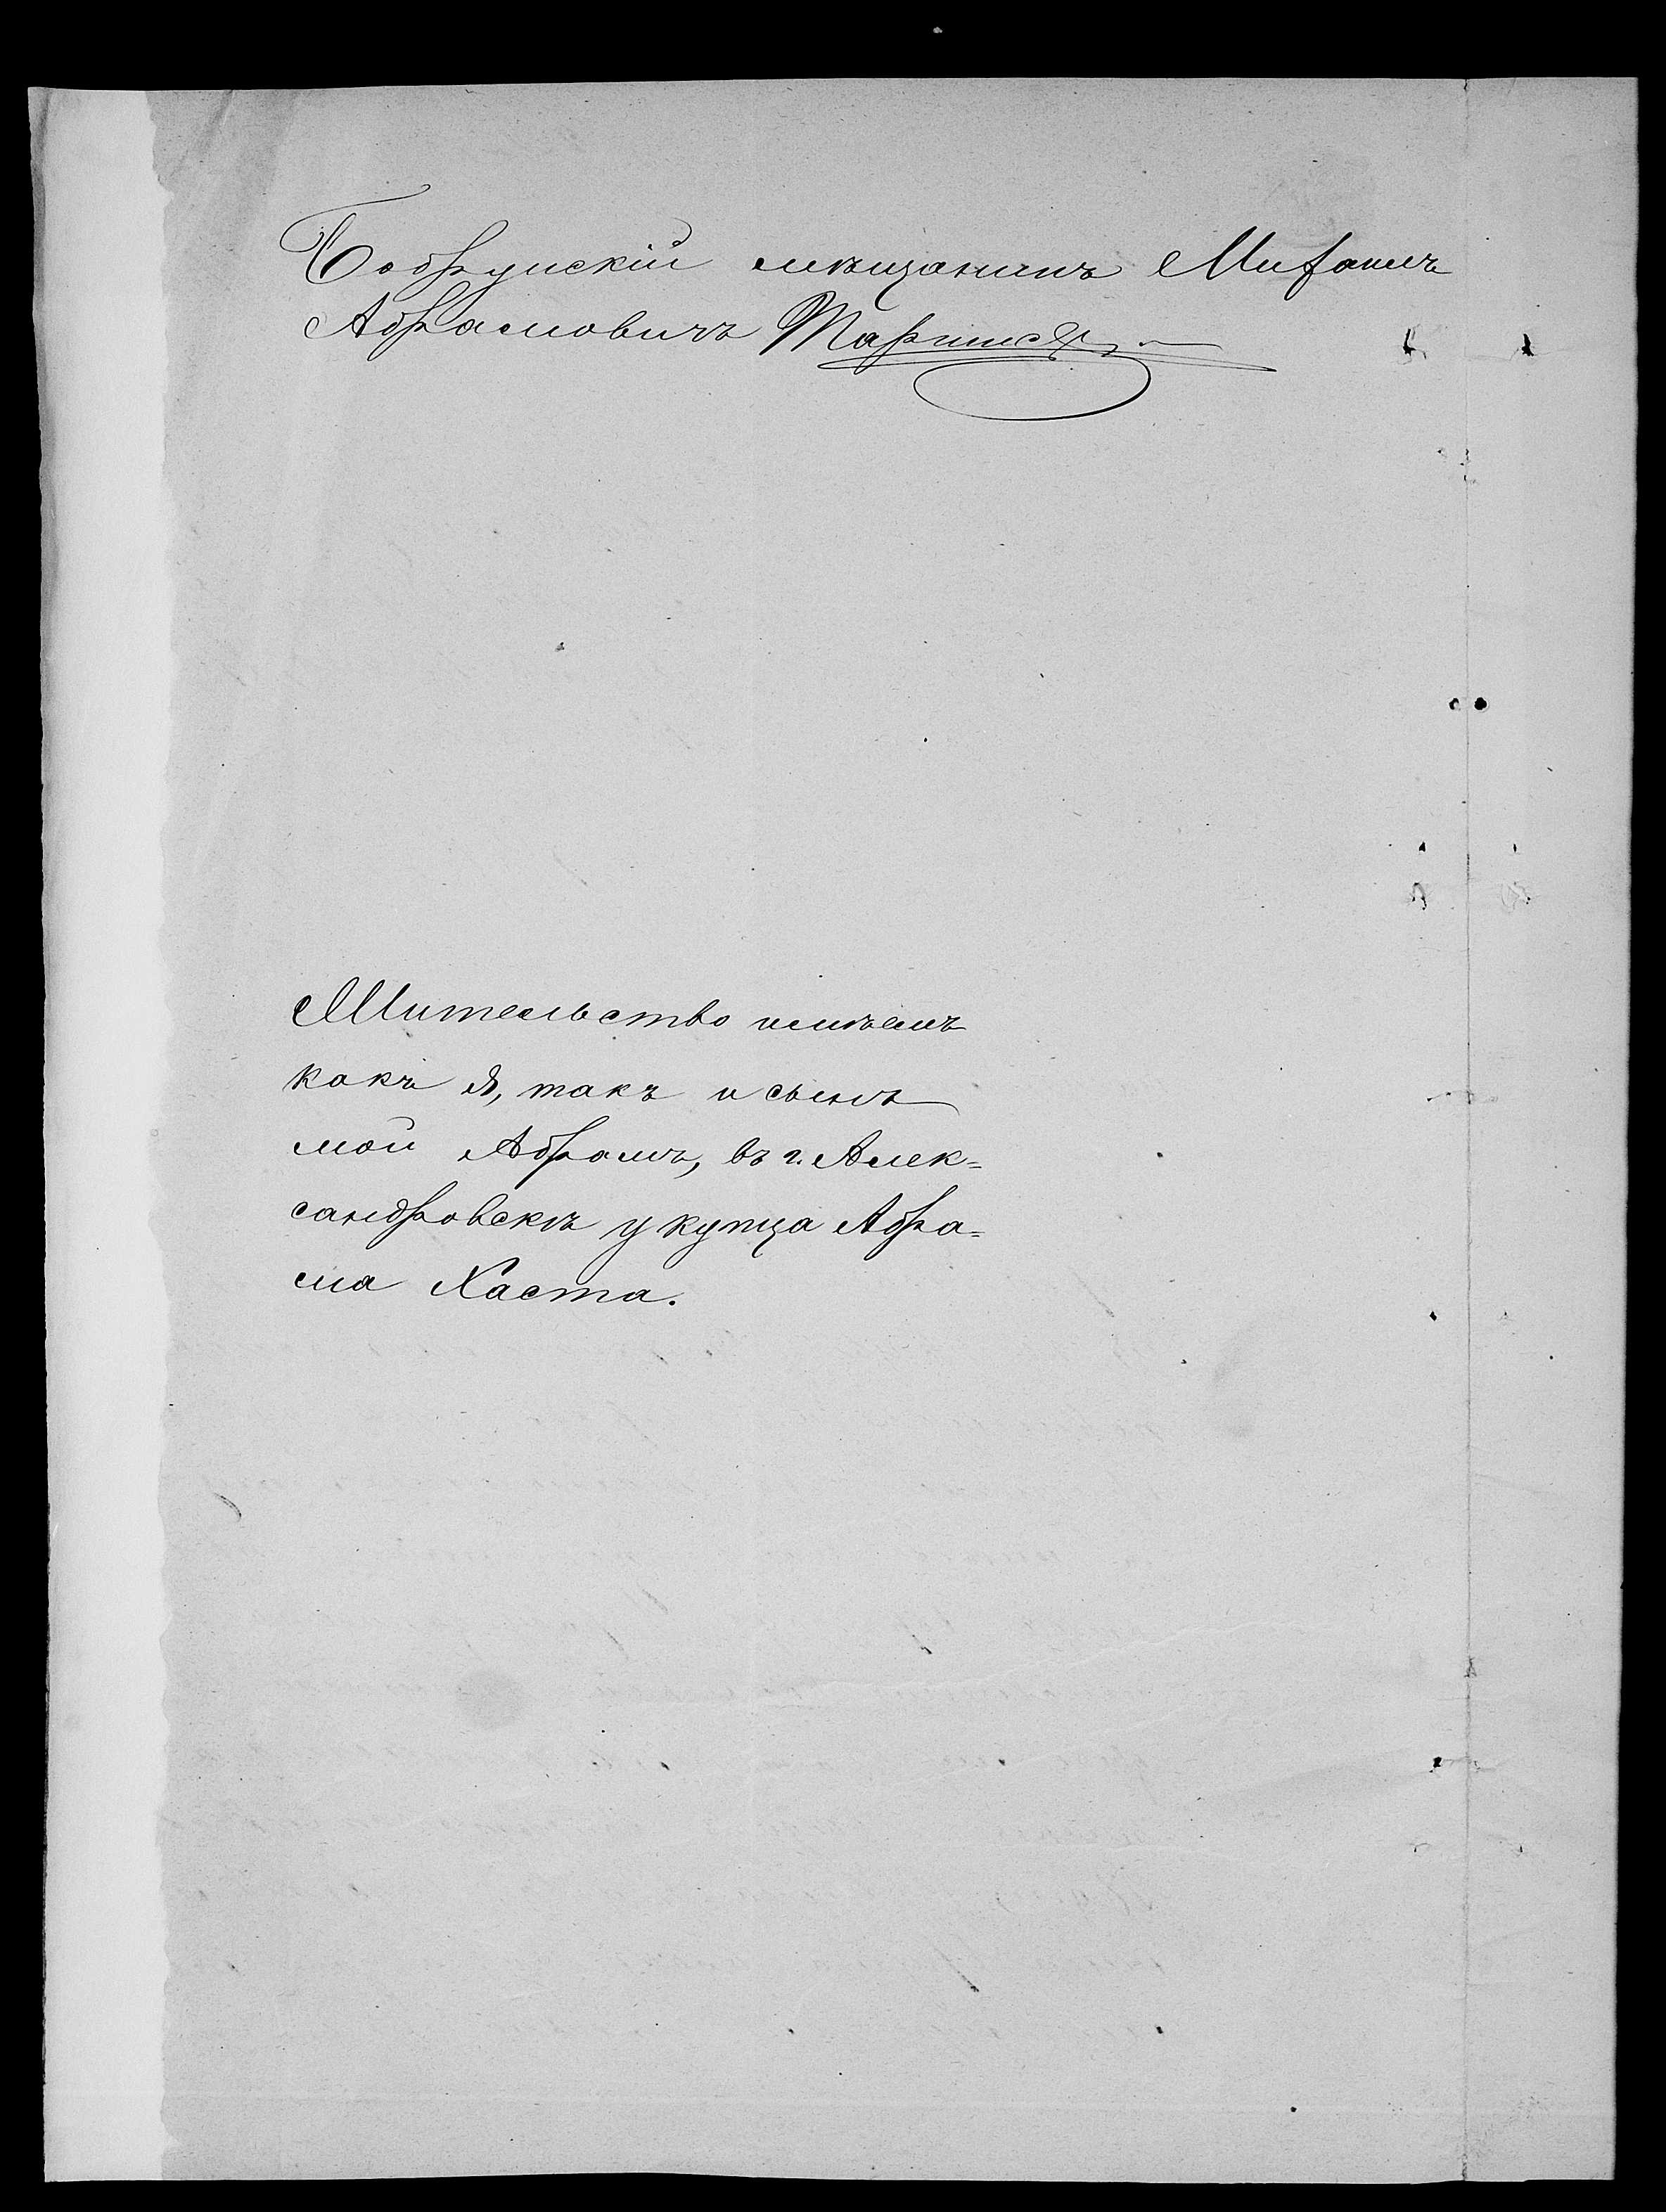 Бобруйскій мѣщанинъ Михаилъ
Абрамовичъ
Жительство имѣемъ
какъ я, такъ и сынъ
мой Абрамъ, въ г. Алек=
сандровскѣ у купца Абра=
ма Хаста.